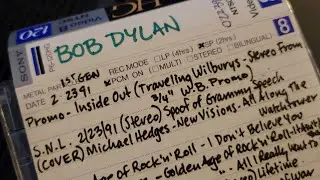 SONY
Video 8
NTSC
120
HG
P6-120HG
BOB DYLAN
METAL PAR 1ST GEN REC. MODE □LP (4hrs) ☒SP (2hrs)
DATE 2-23-91 □PCM ON □MULTI □STEREO □BILINGUAL
Promo - Inside Out (Traveling Wilburys - Stereo From
3/4" W.B. Promo)
S.N.L. 2/23/91 (Stereo) Spoof of Grammy Speech
(COVER) Michael Hedges - New Visions - All Along The
Watchtower
Age of Rock 'n' Roll - I Don't Believe You
Golden Age of Rock 'n' Roll
All I Really Want to
(Stereo) Lifetime
of War